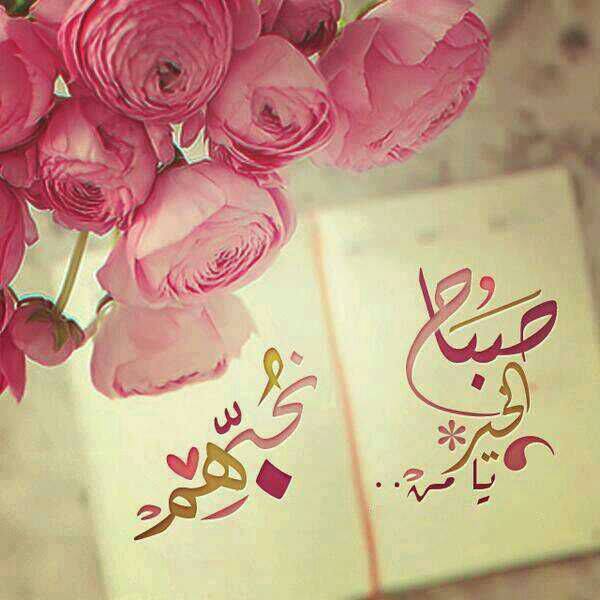 صَبَاحُ
الخير
يا من..
نُحبّهمْ